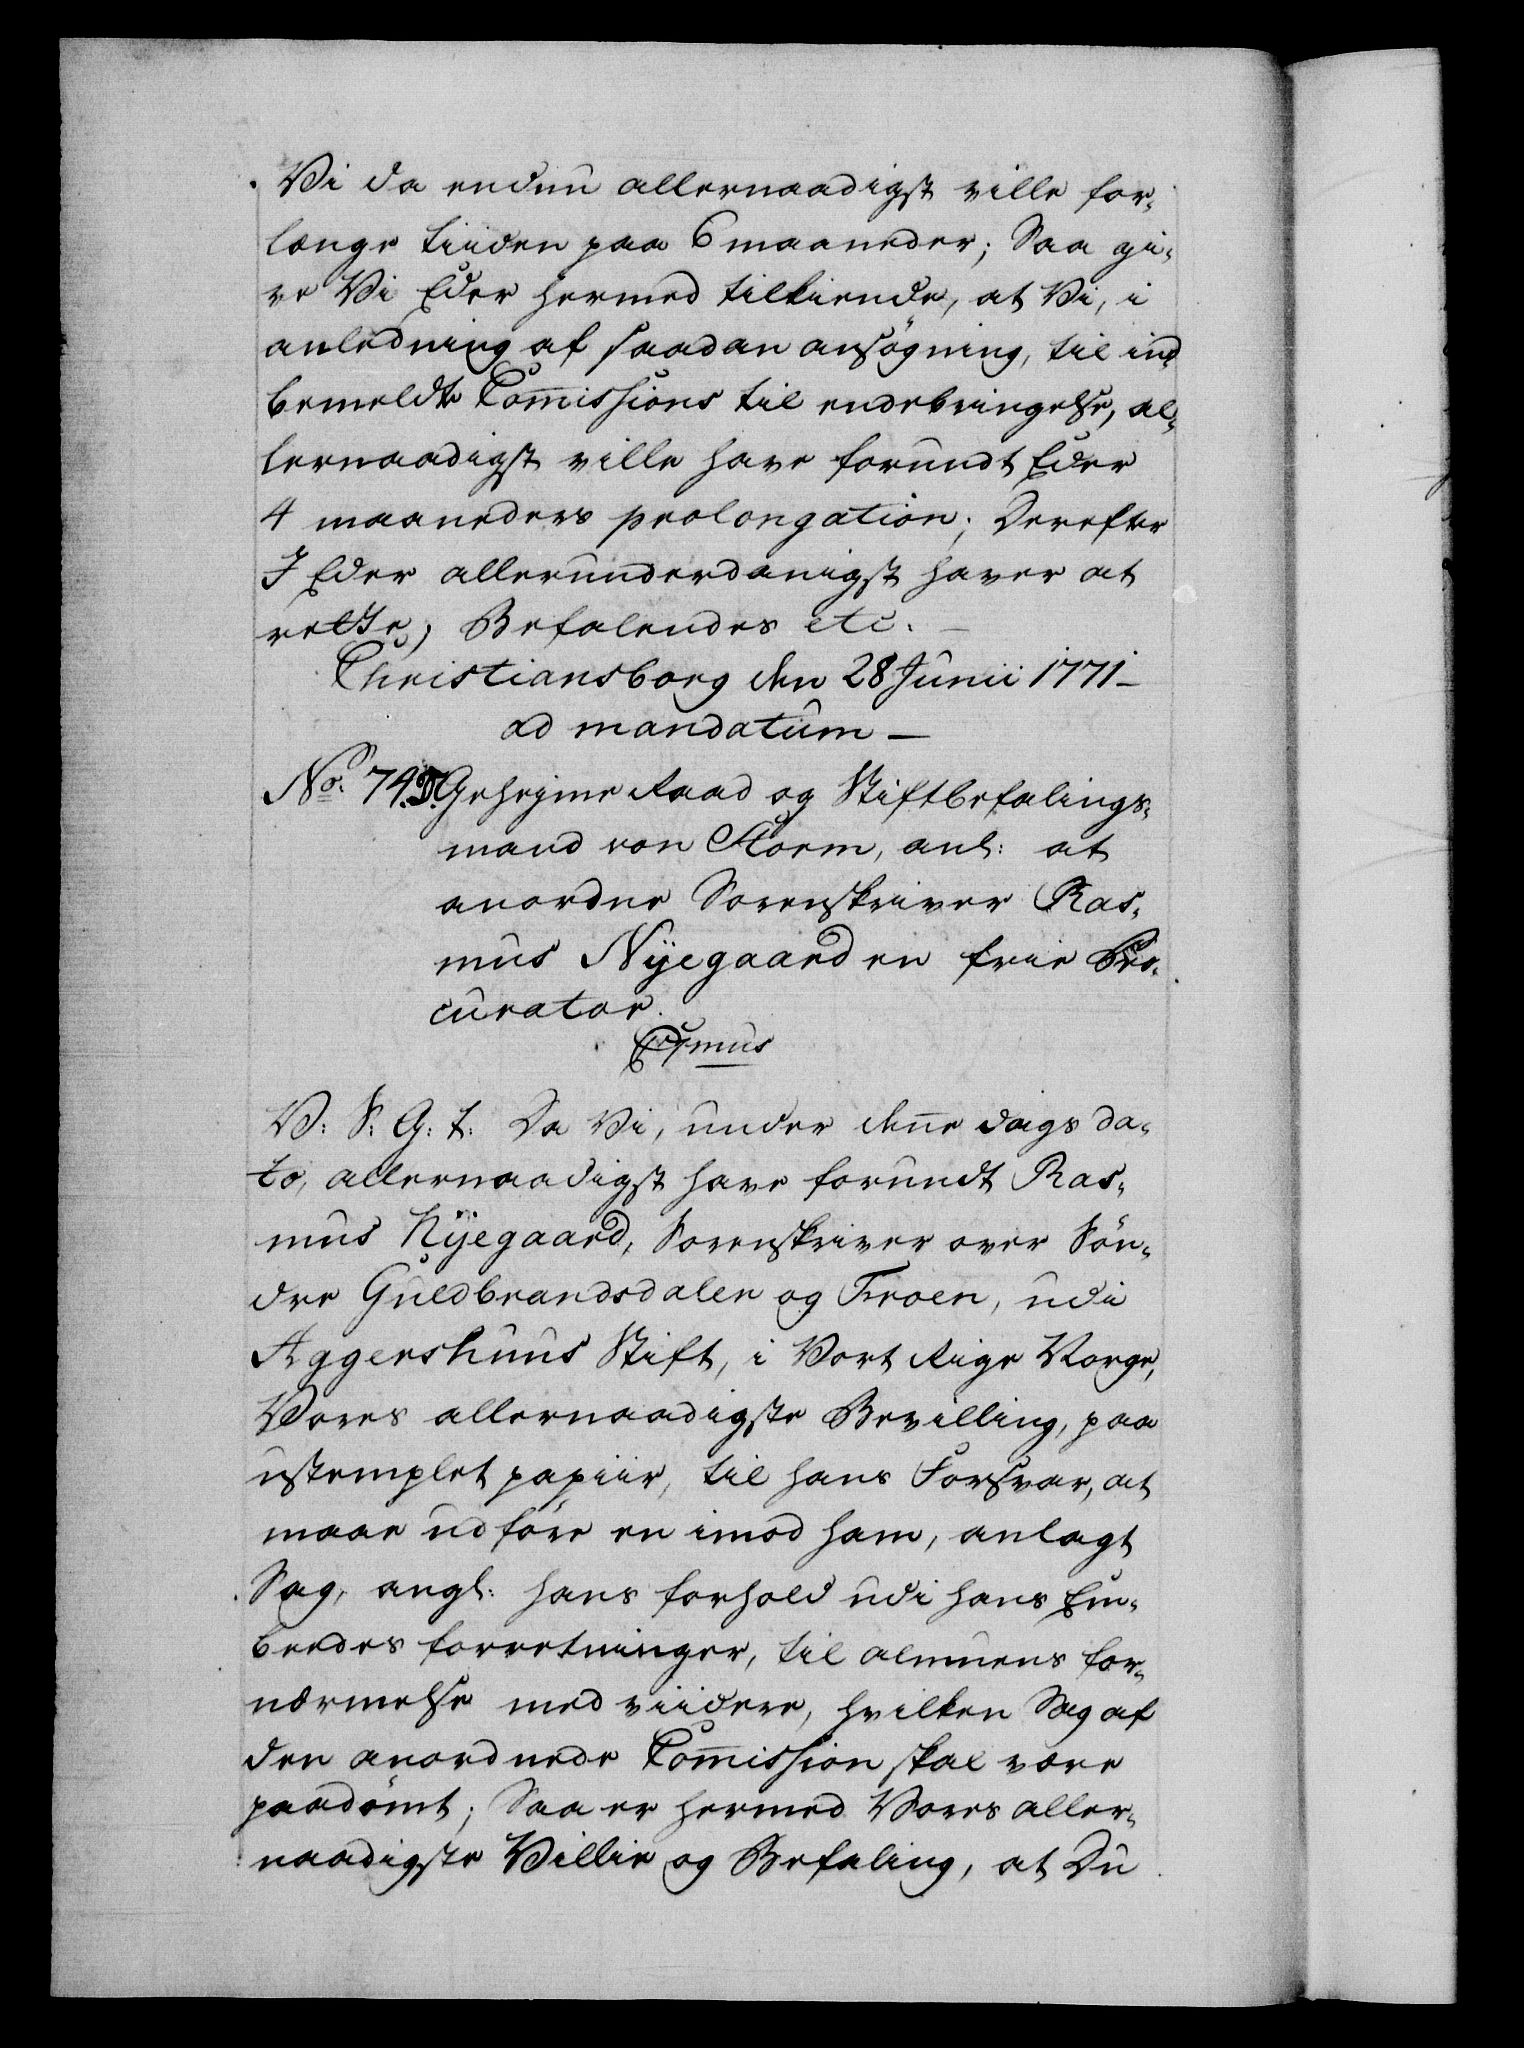 Vi da endnu allernaadigst ville for-
længe tiiden paa 6 maaneder; Saa gi-
ve Vi Eder hermed tilkiende, at Vi, i
anledning af saadan ansøgning, til ind-
bemeldte Com̄issions til endebringelse, al-
lernaadigst ville have forundt Eder
4 maaneders prolongation; Derefter
I Eder allerunderdanigst haver at
rette; Befalendes etc. —
Christiansborg den 28 Junii 1771 —
ad mandatum —
No. 74. D. Geheyme Raad og Stiftbefalings-
mand von Storm, anl: at
anordne Sorenskriver Ras-
mus Nÿegaard en frie Pro-
curator.
V: S: G: t: Da Vi, under den̄e dags da-
to, allernaadigst have forundt Ras-
mus Nÿegaard, Sorenskriver over Søn-
dre Guldbrandsdalen og Froen, udi
Aggershuus Stift, i Vort Rige Norge,
Vores allernaadigste Bevilling, paa
ustemplet papiir, til hans Forsvar, at
maae udføre en imod ham, anlagt
Sag, angl: hans forhold udi hans Em-
beedes forretninger, til almuens for-
nærmelse med viidere, hvilken Sag af
den anordnede Com̄ission skal være
paadømt; Saa er hermed Vores aller-
naadigste Villie og Befaling, at Du